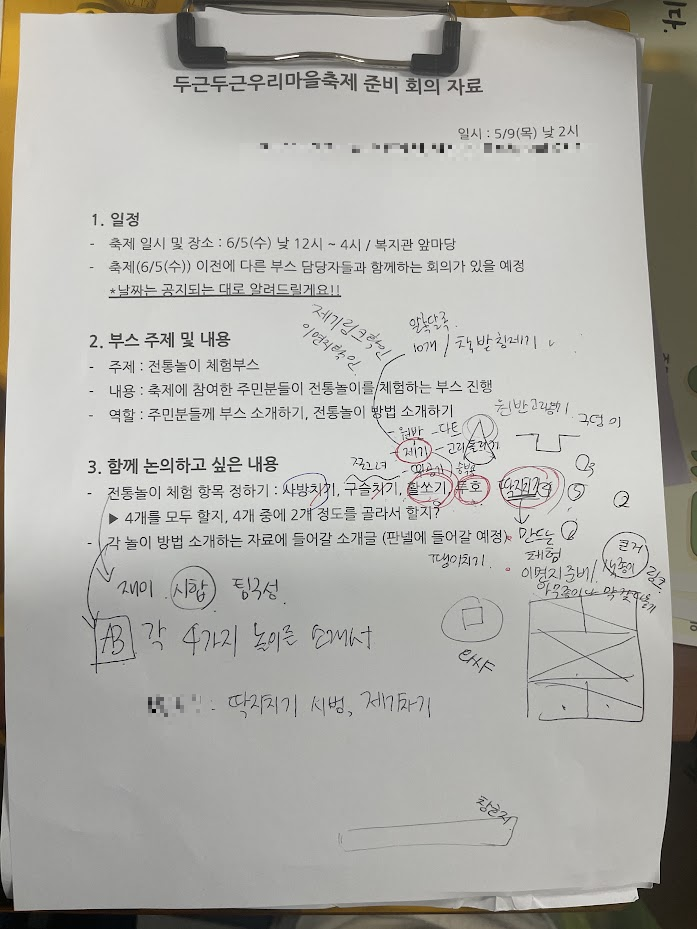 두근두근우리마을축제 준비 회의 자료
일시 : 5/9(목) 낮 2시
1. 일정
- 축제 일시 및 장소 : 6/5(수) 낮 12시 ~ 4시 / 복지관 앞마당
- 축제(6/5(수)) 이전에 다른 부스 담당자들과 함께하는 회의가 있을 예정
*날짜는 공지되는 대로 알려드릴게요!!
제기링크확인
이면지확인
알록달록
10개 / 책받침제기
2. 부스 주제 및 내용
- 주제 : 전통놀이 체험부스
- 내용 : 축제에 참여한 주민분들이 전통놀이를 체험하는 부스 진행
- 역할 : 주민분들께 부스 소개하기, 전통놀이 방법 소개하기
구덩이
- 다트
- 제기
3. 함께 논의하고 싶은 내용
- 전통놀이 체험 항목 정하기 : 사방치기, 구슬치기, 활쏘기, 투호, 딱지치기
③
⑤
②
▶ 4개를 모두 할지, 4개 중에 2개 정도를 골라서 할지?
- 각 놀이 방법 소개하는 자료에 들어갈 소개글 (판넬에 들어갈 예정)
만드는
체험
이면지준비/
땡이치기.
큰거
색종이
링크
재미 . 시합 팀구성.
AB 각 4가지 놀이를 소개서
: 딱지치기 시범, 제기차기
창호지